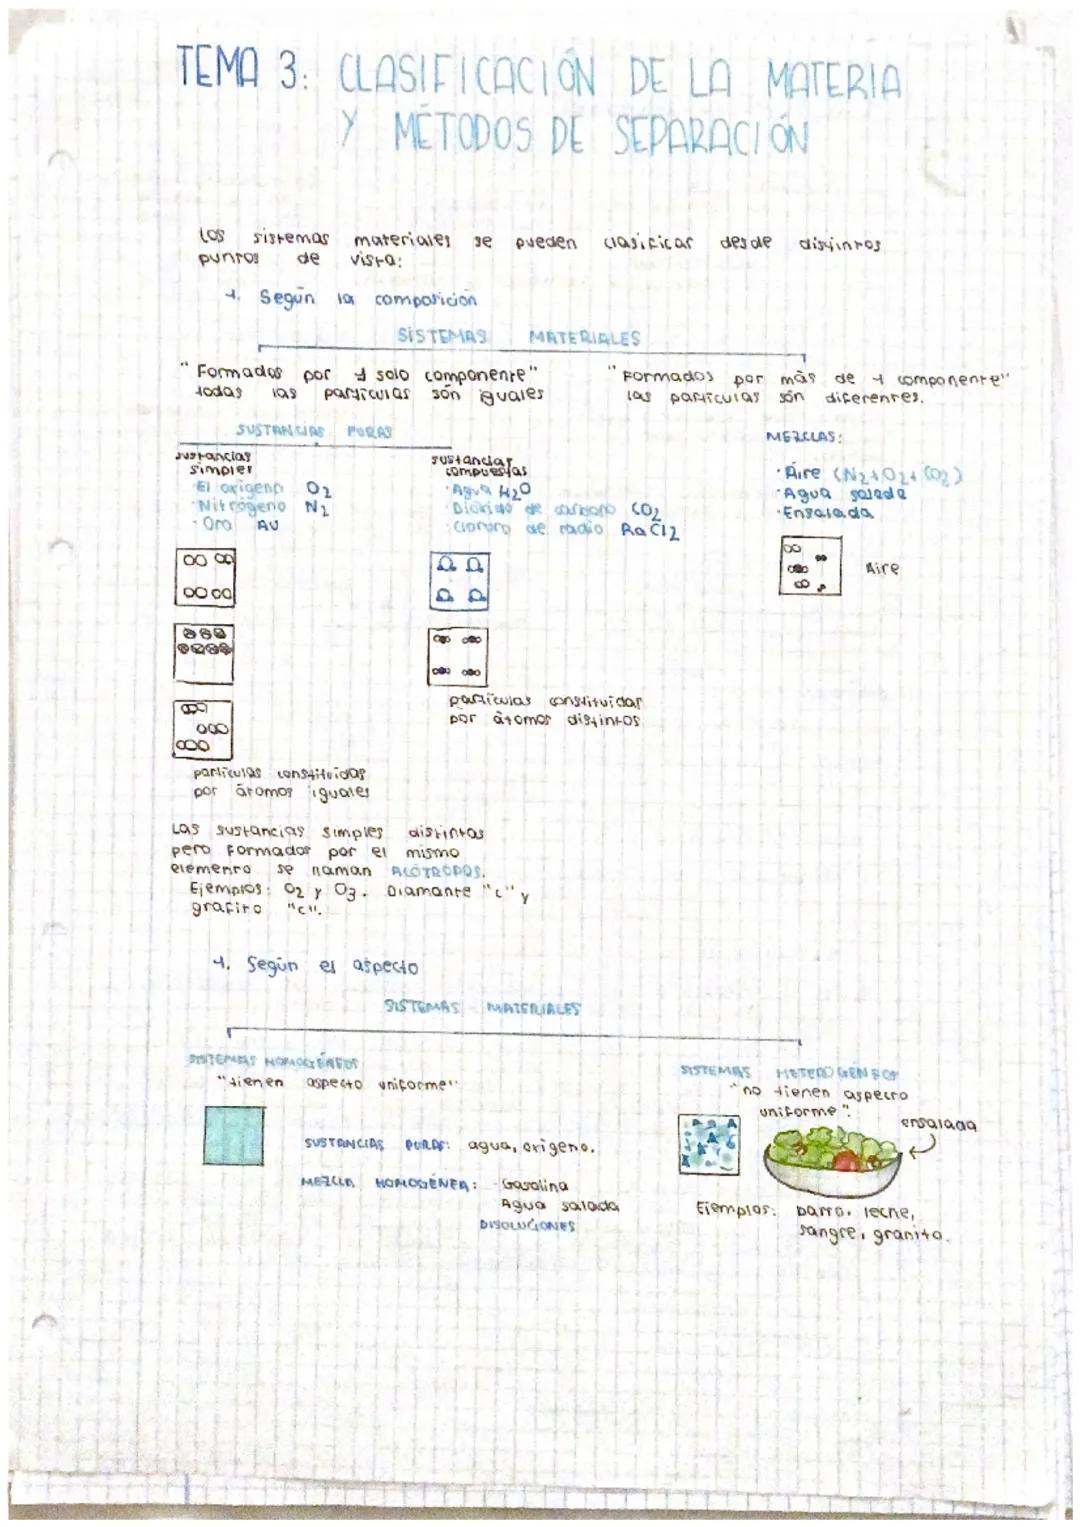 TEMA 3: CLASIFICACIÓN DE LA MATERIA
Y MÉTODOS DE SEPARACIÓN
Los sistemas materiales se pueden clasificar desde distintos
puntos de vista:
1. Según la composición
SISTEMAS MATERIALES
"Formados por 1 solo componente"
todas las partículas són iguales
"Formados por más de 1 componente"
las partículas són diferentes.
SUSTANCIAS PURAS
MEZCLAS:
sustancias
simples
· El oxigeno O2
· Nitrógeno N2
· Oro Au
sustancias
compuestas
· Agua H2O
· Dióxido de carbono CO2
· Cloruro de radio RaCl2
· Aire (N2+O2+CO2)
· Agua salada
· Ensalada
Aire
partículas constituidas
por átomos distintos
partículas constituidas
por átomos iguales
Las sustancias simples distintas
pero formados por el mismo
elemento se llaman ALÓTROPOS.
Ejemplos: O2 y O3. Diamante "c" y
grafito "c".
1. Según el aspecto
SISTEMAS MATERIALES
SISTEMAS HOMOGÉNEOS
"tienen aspecto uniforme"
SISTEMAS HETEROGÉNEOS
"no tienen aspecto
uniforme".
ensalada
SUSTANCIAS PURAS: agua, oxigeno.
MEZCLA HOMOGÉNEA: Gasolina
Agua salada
DISOLUCIONES
Ejemplos: barro, leche,
sangre, granito.